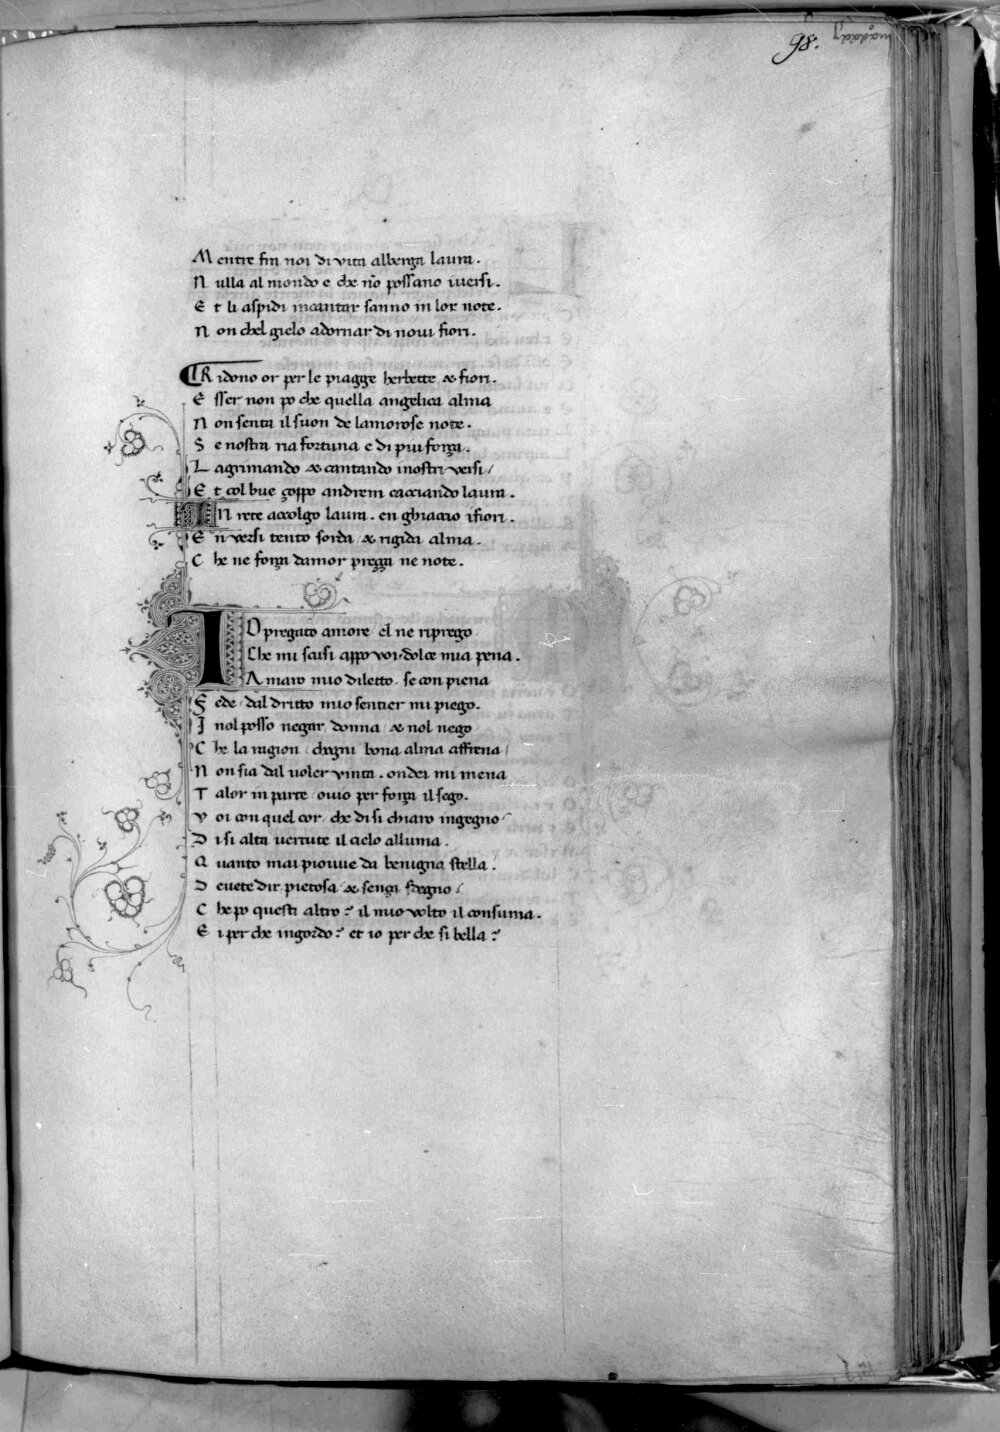 98.
Mentre fra noi di vita alberga laura.
Nulla al mondo e che nō possano iversi.
Et li aspidi incantar sanno in lor note.
Non chel gielo adornar di novi fiori.
Ridono or per le piagge herbette & fiori.
Esser non po che quella angelica alma
Non senta il suon de lamorose note.
Se nostra ria fortuna e di piu forza.
Lagrimando & cantando inostri versi/
Et col bue çoppo andrem cacciando laura.
In rete accolgo laura. en ghiaccio ifiori.
En versi tento sorda & rigida alma.
Che ne forza damor prezza ne note.
Io pregato amore/ el ne riprego
Che mi scusi appo voi/ dolce mia pena.
Amaro mio diletto/ se con piena
Fede/ dal dritto mio sentier mi piego.
I nol posso negar/ donna/ & nol nego
Che la ragion/ chogni bona alma affrena/
Non sia dal voler vinta. ondei mi mena
Talor in parte/ ovio per forza il sego.
Voi con quel cor/ che di si chiaro ingegno/
Di si alta vertute il cielo alluma.
Quanto mai piovve da benigna stella.
Devete dir/ pietosa & senza sdegno/
Che po questi altro? il mio volto il consuma.
Ei perche ingordo? et io perche si bella?